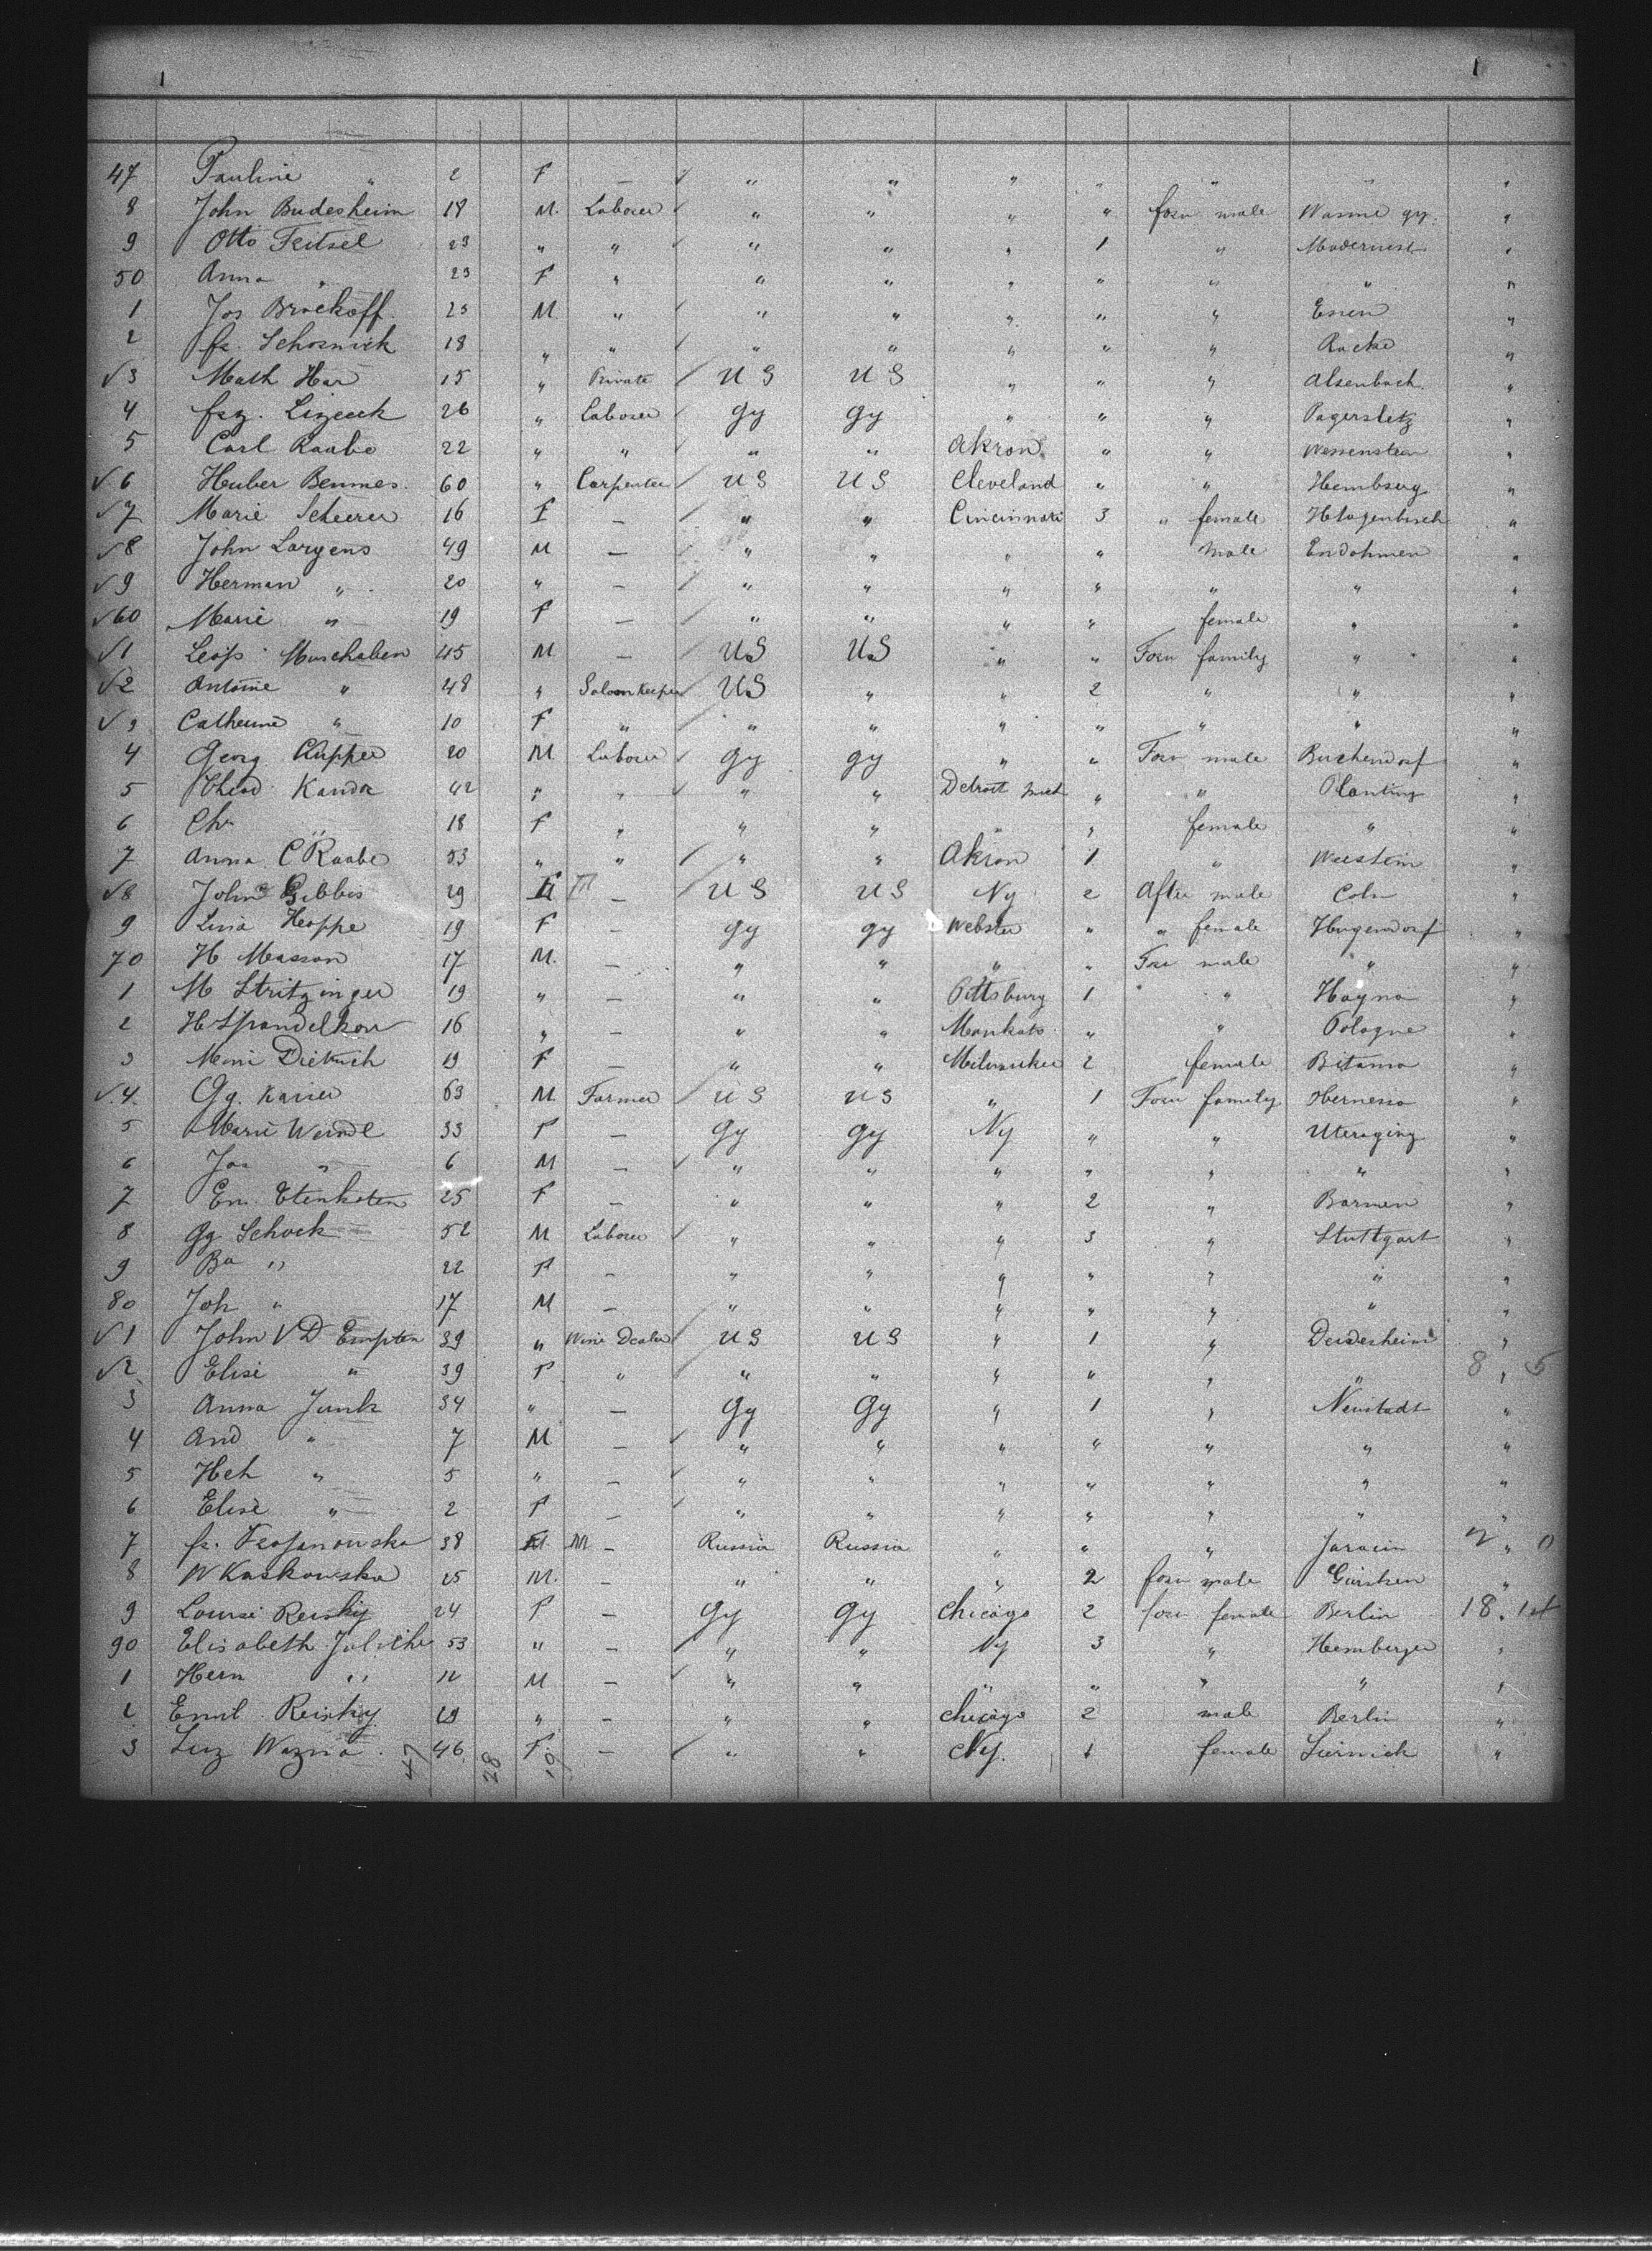 1 1
47 Pauline " 2 F — " " " " " " "
8 John Budesheim 18 M. Laborer " " " " forw male Wanne gy. "
9 Otto Feitsel 23 " " " " " 1 " "
50 Anna " 23 F " " " " " " " "
1 Jos Brockoff. 23 M. " " " " " " Essen "
2 fr. Schosnick 18 " " " " " " " Racke "
√3 Math Har 15 " Private U S U S " " " Alsenbach "
4 frz. Lizeuk 26 " Laborer Gy Gy " " " "
5 Carl Raabe 22 " " " " Akron " " Wessenstein "
√6 Huber Bemmes. 60 " Carpenter U S U S Cleveland " " Hembserg "
√7 Marie Scheerer 16 F — " " Cincinnati 3 " female "
√8 John Largens 49 M — " " " " male Endohmen "
√9 Herman " 20 " — " " " " " " "
√60 Marie " 19 F — " " " " female " "
√1 Leop Muschaben 45 M — US US " " Forw family " "
√2 Antoine " 48 " Saloon Keeper US " " 2 " " "
√3 Catherine " 10 F " " " " " " " "
4 Georg Kupper 20 M Laborer Gy Gy " " Forw male Buchendorf "
5 Thead Kanda 42 " " " " Detroit Mich " " Planting "
6 Chr " 18 F " " " " " female " "
7 Anna C Raabe 53 " " " " Akron 1 " Weestein "
√8 John Gibbis 29 M — U S U S Ny 2 After male Coln "
9 Lina Hoppe 19 F — Gy Gy Webster " " female Hugendorf "
70 H Masson 17 M. — " " " " Forw male " "
1 M Stritzinger 19 " — " " Pittsburg 1 " " Hayna "
2 H Spandelkow 16 " — " " Mankato " " Pologne "
3 Mini Dietrich 19 F — " " Milwaukee 2 female Bitama "
√4. Gg. Kaiser 63 M Farmer U S U S " 1 Forw family Hernesso "
5 Marie Weindl 33 F — Gy Gy Ny " " Uteraging "
6 Jos " 6 M — " " " " " " "
7 Em. Etenkoten 25 F — " " " 2 " Barmen "
8 Gg Schock 52 M Laborer " " " 3 " Stuttgart "
9 Ba " 22 F — " " " " " " "
80 Joh " 17 M — " " " " " " "
√1 John V D Empten 39 " Wine Dealer U S U S " 1 " Deidesheim "
√2 Elise " 39 F " " " " " " " 8 " 5
3 Anna Junk 34 " — Gy Gy " 1 " Neustadt "
4 And " 7 M — " " " " " " "
5 Heh " 5 " — " " " " " " "
6 Elise " 2 F — " " " " " " "
7 fr. Trojanowska 38 M — Russia Russia " " " Jarocin "
8 W Kaskowska 25 M. — " " " 2 forw male "
9 Louise Reisky 24 F — Gy Gy Chicago 2 forw female Berlin 18.1st
90 Elisabeth 53 " — " " Ny 3 " Hemberger "
1 Hern " 12 M — " " " " " " "
2 Emil Reisky 29 " — " " Chicago 2 male Berlin "
3 Luz Wazna 46 F — " " Ny. 1 female "
47 28 19